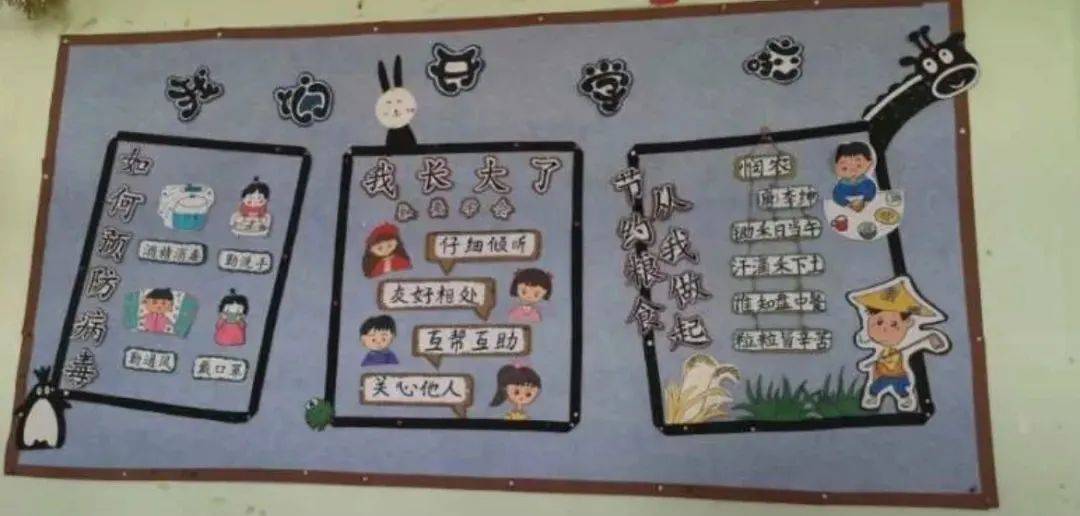 我们
如何预防病毒
酒精消毒
勤洗手
勤通风
戴口罩
我长大了
仔细倾听
友好相处
互帮互助
关心他人
节约粮食
从我做起
悯农
唐李绅
锄禾日当午
汗滴禾下土
谁知盘中餐
粒粒皆辛苦